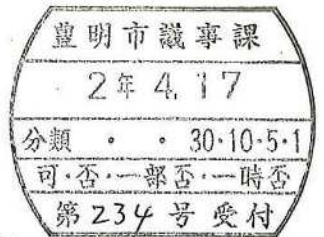 豊明市議事課
2年4.17
分類・・30・10・5・1
可・否・一部否・一時否
第234号受付